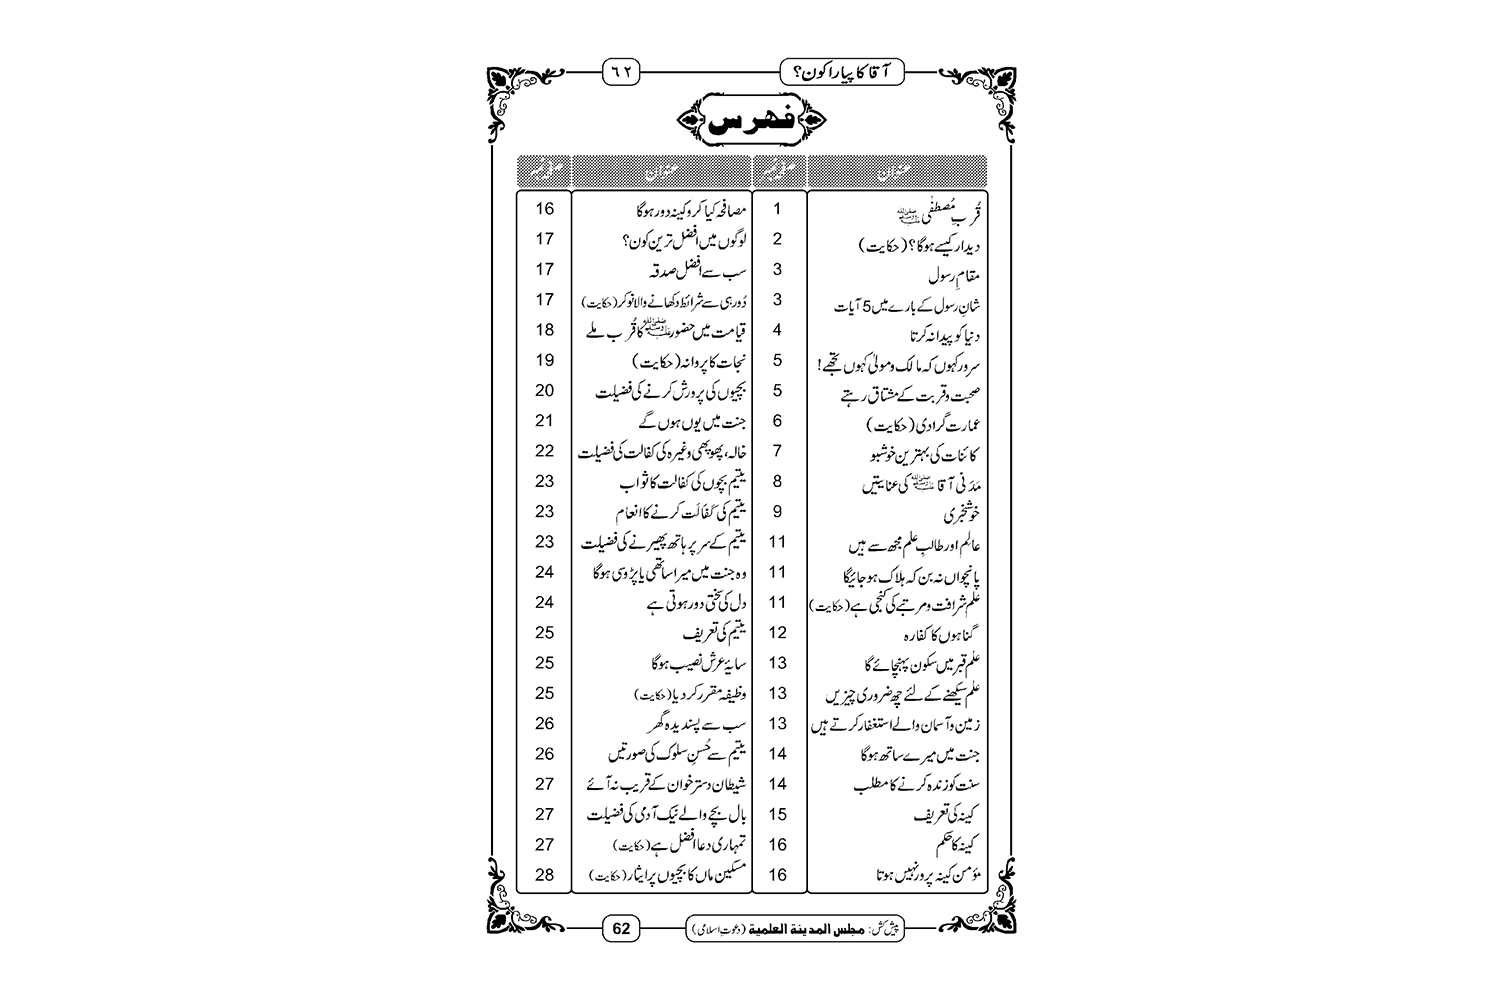 آقا کا پیارا کون؟ ٦٢
فہرس
عنوان صفحہ نمبر عنوان صفحہ نمبر
قُربِ مُصطفٰی ﷺ 1 مصافحہ کیا کرو کینہ دور ہوگا 16
دیدار کیسے ہوگا؟ (حکایت) 2 لوگوں میں افضل ترین کون؟ 17
مقامِ رسول 3 سب سے افضل صدقہ 17
شانِ رسول کے بارے میں 5 آیات 3 دُور ہی سے شرائط دکھانے والا نوکر (حکایت) 17
دنیا کو پیدا نہ کرتا 4 قیامت میں حضور ﷺ کا قُرب ملے 18
سرور کہوں کہ مالک و مولیٰ کہوں تجھے! 5 نجات کا پروانہ (حکایت) 19
صحبت و قربت کے مشتاق رہتے 5 بچیوں کی پرورش کرنے کی فضیلت 20
عمارت گرا دی (حکایت) 6 جنت میں یوں ہوں گے 21
کائنات کی بہترین خوشبو 7 خالہ، پھوپھی وغیرہ کی کفالت کی فضیلت 22
مَدَنی آقا ﷺ کی عنایتیں 8 یتیم بچوں کی کفالت کا ثواب 23
خوشخبری 9 یتیم کی کَفَالَت کرنے کا انعام 23
عالِم اور طالبِ علم مجھ سے ہیں 11 یتیم کے سر پر ہاتھ پھیرنے کی فضیلت 23
پانچواں نہ بن کہ ہلاک ہو جائیگا 11 وہ جنت میں میرا ساتھی یا پڑوسی ہوگا 24
علم شرافت و مرتبے کی کنجی ہے (حکایت) 11 دل کی سختی دور ہوتی ہے 24
گناہوں کا کفارہ 12 یتیم کی تعریف 25
علم قبر میں سکون پہنچائے گا 13 سایۂ عرش نصیب ہوگا 25
علم سیکھنے کے لئے چھ ضروری چیزیں 13 وظیفہ مقرر کر دیا (حکایت) 25
زمین و آسمان والے استغفار کرتے ہیں 13 سب سے پسندیدہ گھر 26
جنت میں میرے ساتھ ہوگا 14 یتیم سے حُسنِ سلوک کی صورتیں 26
سنت کو زندہ کرنے کا مطلب 14 شیطان دستر خوان کے قریب نہ آئے 27
کینہ کی تعریف 15 بال بچے والے نیک آدمی کی فضیلت 27
کینہ کا حکم 16 تمہاری دعا افضل ہے (حکایت) 27
مؤمن کینہ پرور نہیں ہوتا 16 مسکین ماں کا بچیوں پر ایثار (حکایت) 28
پیش کش: مجلس المدینة العلمیة (دعوتِ اسلامی) 62